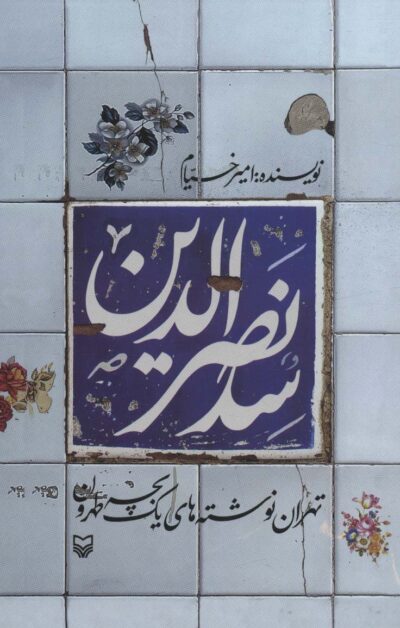 نویسنده: امیر خیّام
سِد نصرالدین
تهران نوشته‌های یک بچه طهرون